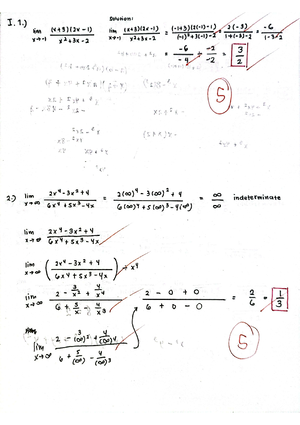 I. 1.) lim x→-1 (x+3)(2x-1) / x²+3x-2
Solution:
lim x→-1 (x+3)(2x-1) / x²+3x-2 = (-1+3)(2(-1)-1) / (-1)²+3(-1)-2 = 2(-3) / 1+(-3)-2 = -6 / -1-3-2
= -6/-4 ÷ -2/-2 = 3/2
5
2.) lim x→∞ 2x⁴-3x²+4 / 6x⁴+5x³-4x = 2(∞)⁴-3(∞)²+4 / 6(∞)⁴+5(∞)³-4(∞) = ∞/∞ indeterminate
lim x→∞ 2x⁴-3x²+4 / 6x⁴+5x³-4x
lim x→∞ (2x⁴-3x²+4 / 6x⁴+5x³-4x) ÷ x⁴
lim x→∞ 2 - 3/x² + 4/x⁴ / 6 + 5/x - 4/x³
2 - 0 + 0 / 6 + 0 - 0 = 2/6 = 1/3
lim x→∞ 2 - 3/(∞)² + 4/(∞)⁴ / 6 + 5/(∞) - 4/(∞)³
5